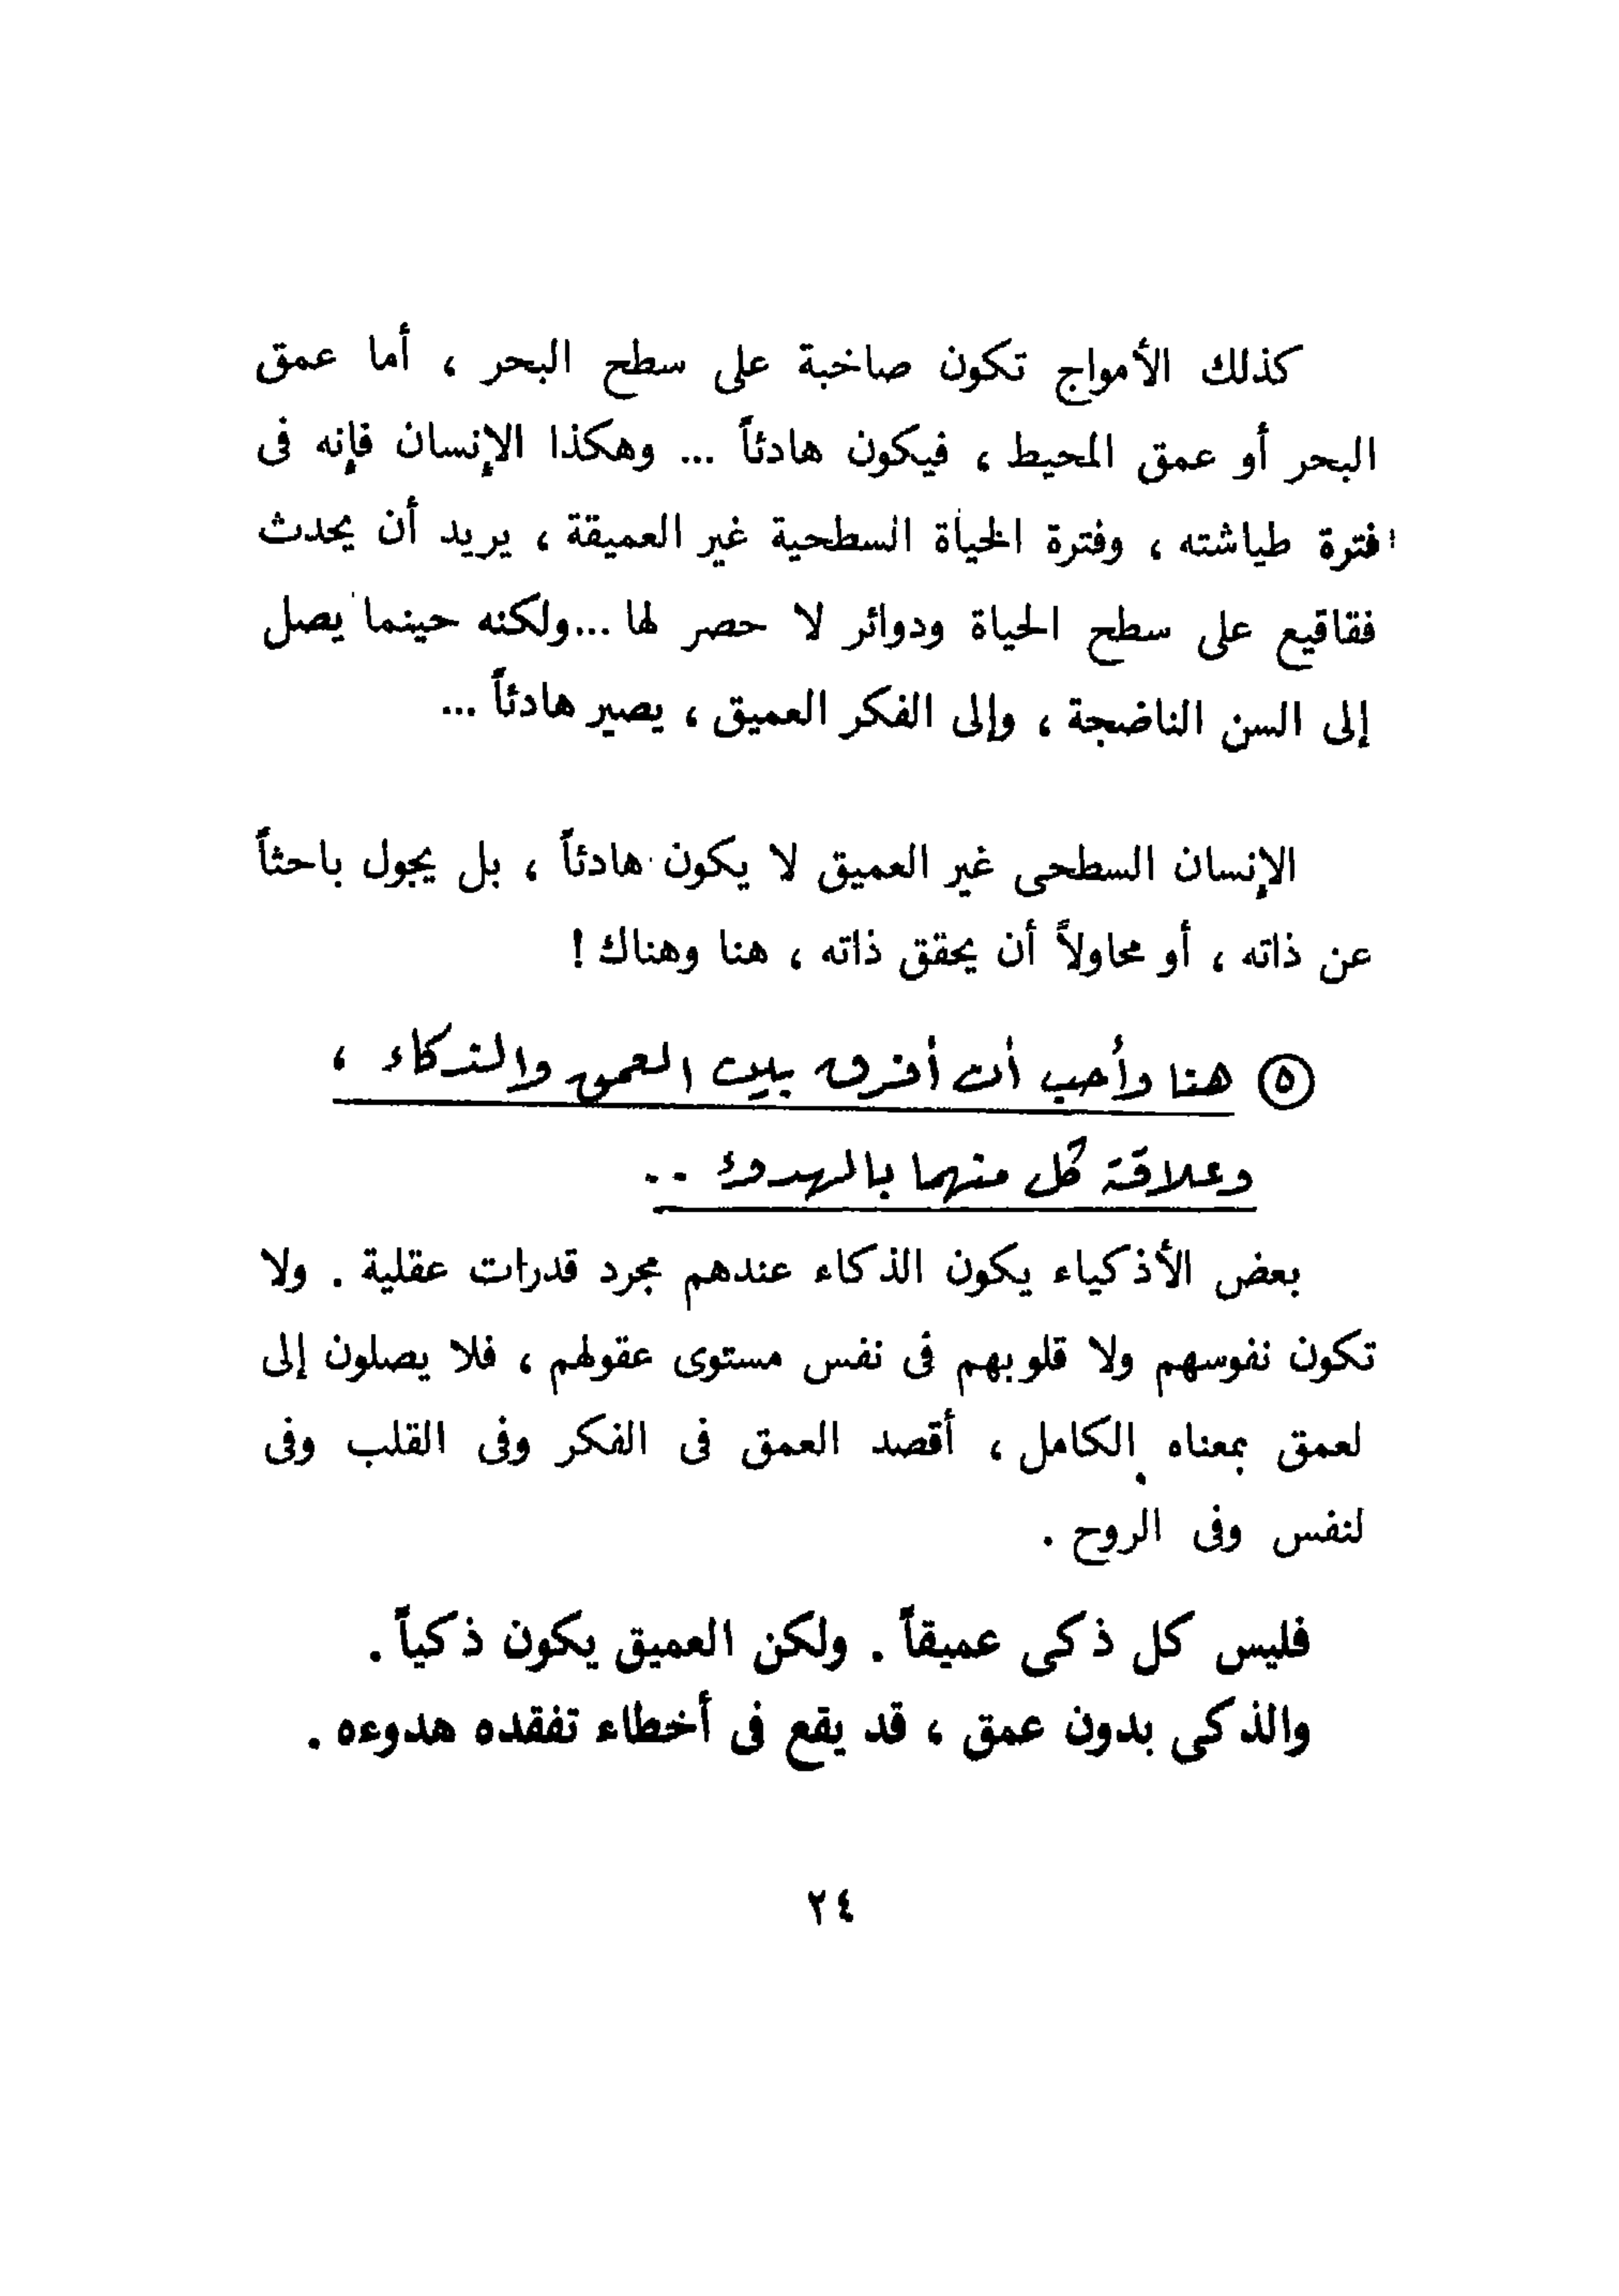 كذلك الأمواج تكون صاخبة على سطح البحر ، أما عمق
البحر أو عمق المحيط ، فيكون هادئاً ... وهكذا الإنسان فإنه فى
فترة طياشته ، وفترة الحياة السطحية غير العميقة ، يريد أن يحدث
فقاقيع على سطح الحياة ودوائر لا حصر لها ... ولكنه حينما يصل
إلى السن الناضجة ، وإلى الفكر العميق ، يصير هادئاً ...
الإنسان السطحى غير العميق لا يكون هادئاً ، بل يجول باحثاً
عن ذاته ، أو محاولاً أن يحقق ذاته ، هنا وهناك !
٥ هنا وأحب أن أفرق بين العمق والذكاء ،
وعلاقة كل منهما بالهدوء ..
بعض الأذكياء يكون الذكاء عندهم مجرد قدرات عقلية . ولا
تكون نفوسهم ولا قلوبهم فى نفس مستوى عقولهم ، فلا يصلون إلى
لعمق بمعناه الكامل ، أقصد العمق فى الفكر وفى القلب وفى
لنفس وفى الروح .
فليس كل ذكى عميقاً . ولكن العميق يكون ذكياً .
والذكى بدون عمق ، قد يقع فى أخطاء تفقده هدوءه .
٢٤